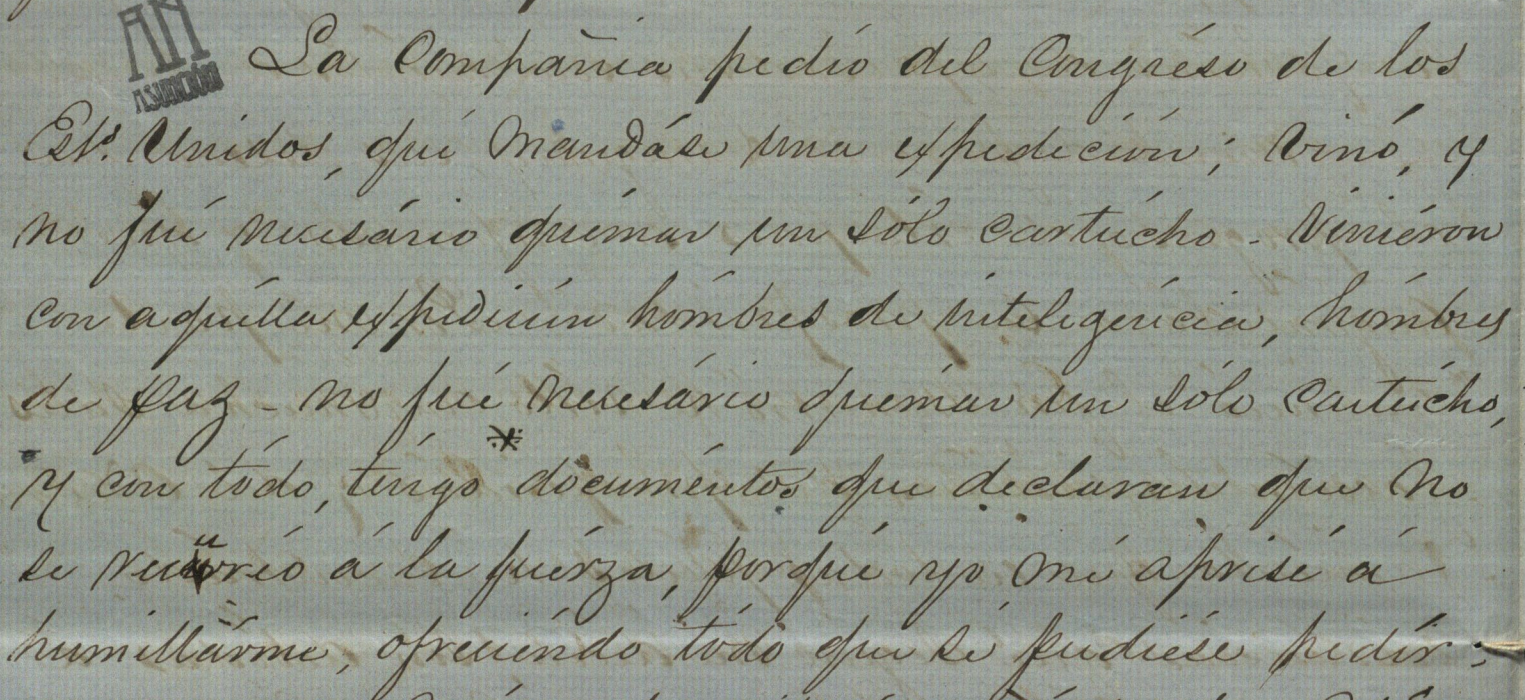 AN
ASUNCIÓN
La Compañia pedió del Congréso de los
Est.s Unidos, qué mandáse una expedición; vinó, y
no fué necesário quémar un sólo cartúcho - Viniéron
con aquélla expedición hómbres de inteligéncia, hómbres
de paz - no fué necesário quémar un sólo cartúcho,
y con tódo, téngo * documéntos que declaran que no
se recurrió á la fuérza, porqué yo mé aprisé á
humillárme, ofreciéndo tódo que sé pudiése pedír;